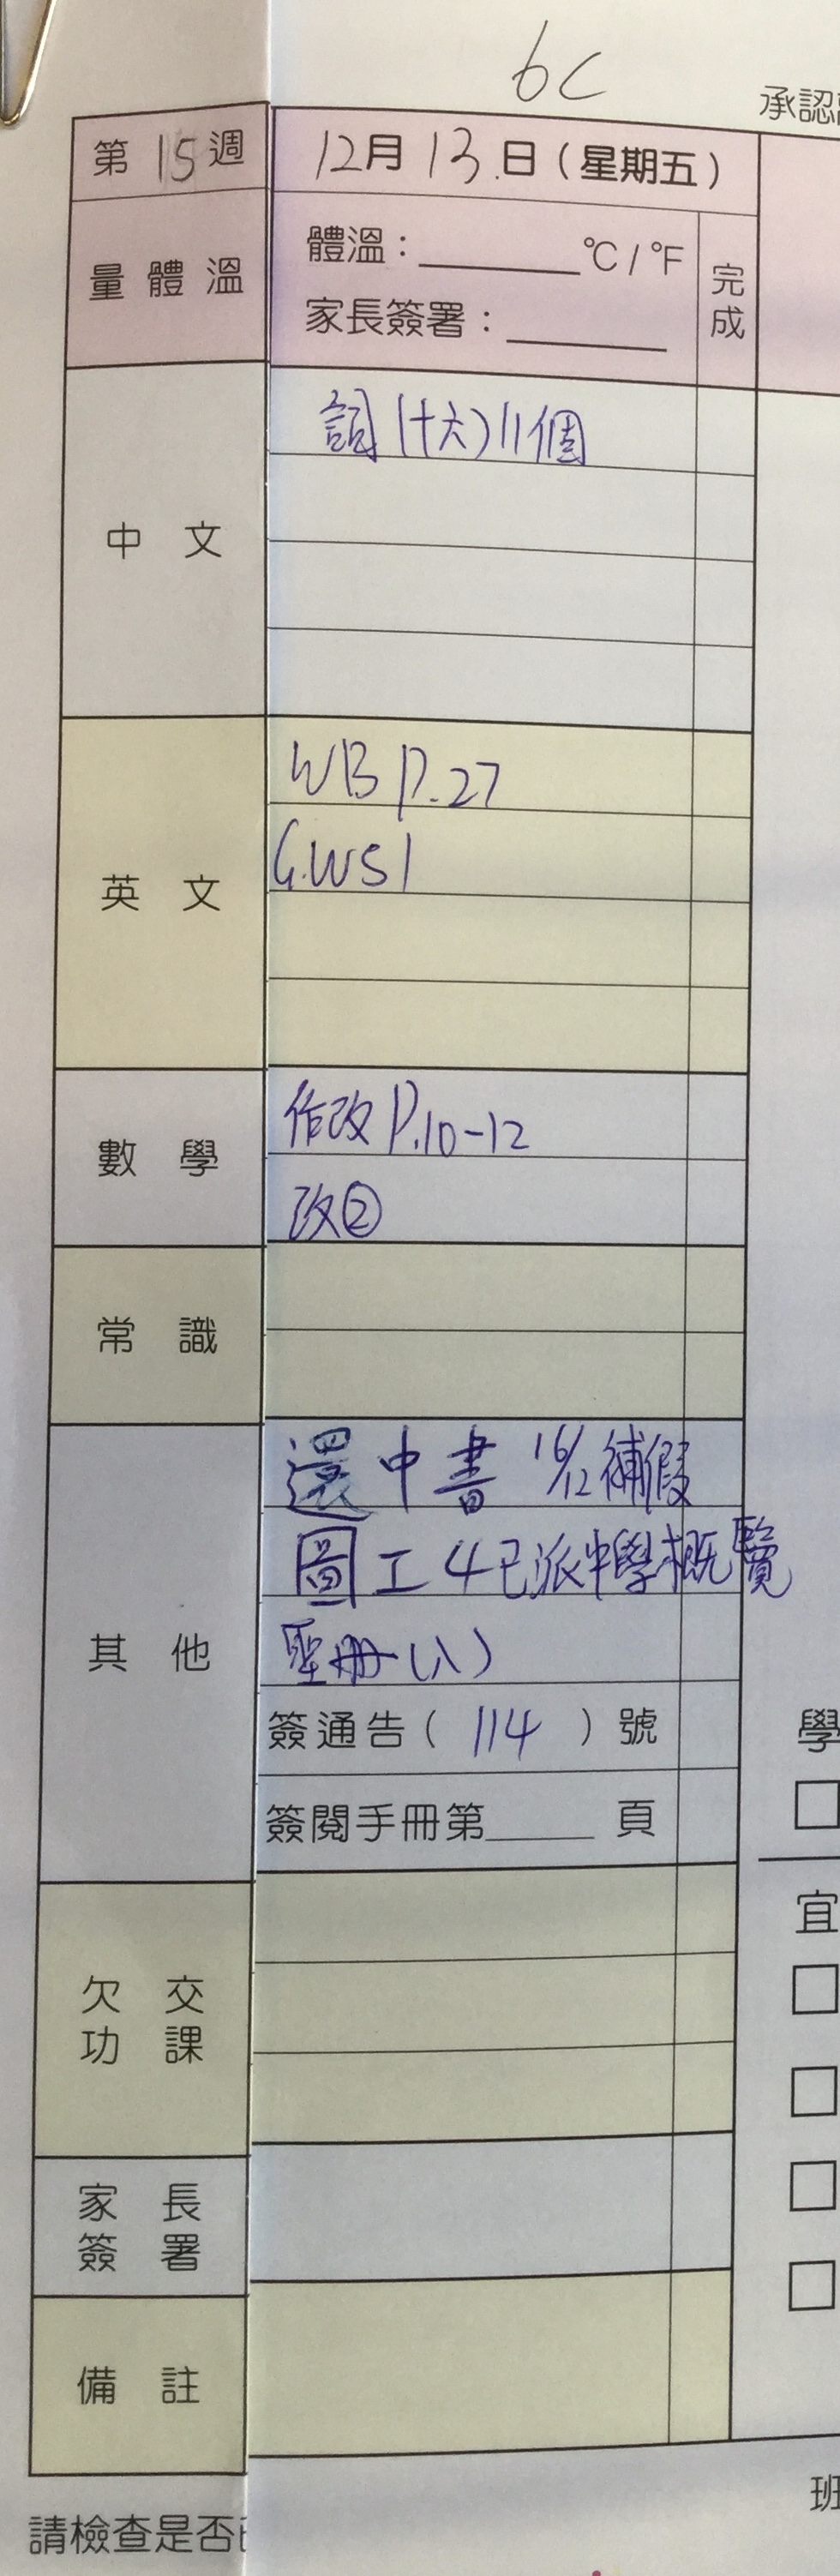 6C
承認
第15週 12月13日(星期五)
量體溫
體溫:______°C/°F
完成
家長簽署:______
中文
詞(十六)11個
英文
WB P.27
G.WS1
數學
作改P.10-12
改②
常識
其他
還中書 16/12補假
圖工4 已派中學概覽
聖冊(八)
簽通告(114)號
簽閱手冊第____頁
欠交
功課
家長
簽署
備註
學
宜
班
請檢查是否